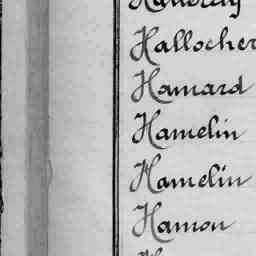 Hallocher
Hamard
Hamelin
Hamelin
Hamon